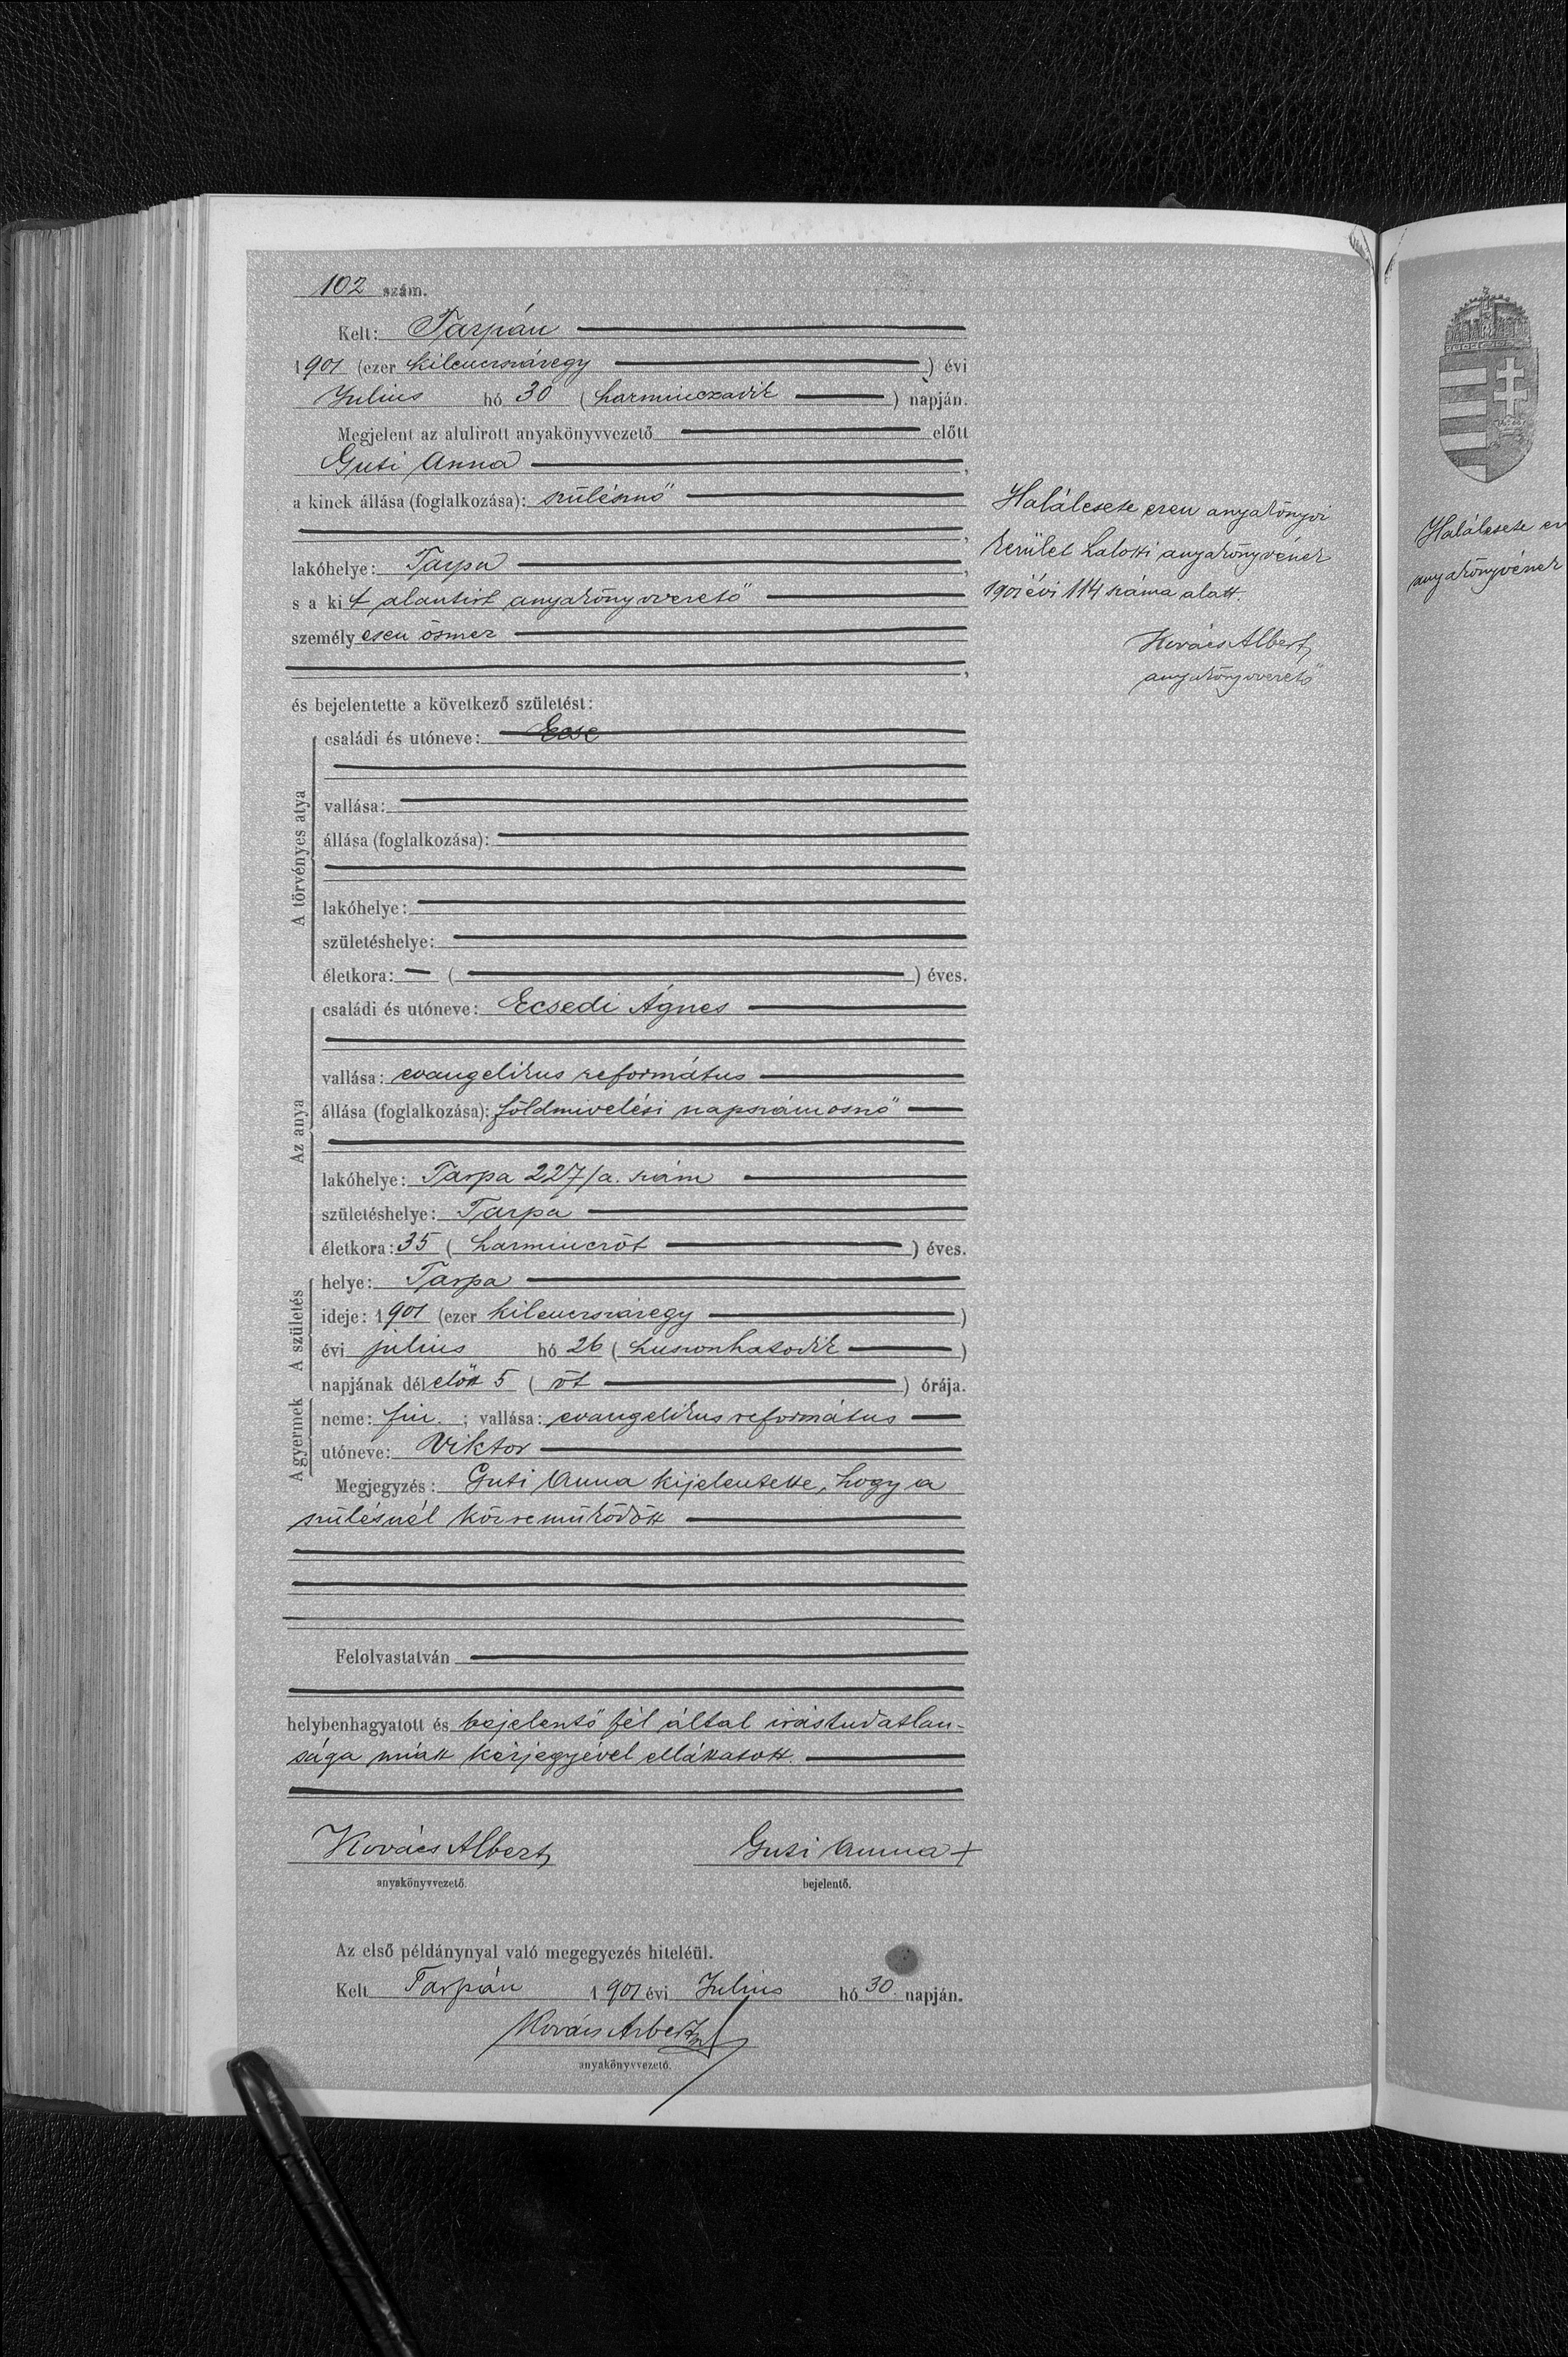 102 szám.
Kelt: Tarpán
1901 (ezer kilenczszázegy) évi
Julius hó 30 (harminczadik) napján.
Megjelent az alulirott anyakönyvvezető előtt
Guti Anna,
a kinek állása (foglalkozása): szülésznő
,
lakóhelye: Tarpa,
s a kit alantirt anyakönyvvezető
személyesen ösmer
,
és bejelentette a következő születést:
A törvényes atya
családi és utóneve: Ecse
vallása:
állása (foglalkozása):
lakóhelye:
születéshelye:
életkora: — ( ) éves.
Az anya
családi és utóneve: Ecsedi Ágnes
vallása: evangelikus református
állása (foglalkozása): földmivelési napszámosnő
lakóhelye: Tarpa 227/a. szám
születéshelye: Tarpa
életkora: 35 (harminczöt) éves.
A születés
helye: Tarpa
ideje: 1901 (ezer kilenczszázegy)
évi julius hó 26 (huszonhatodik)
napjának délelőtt 5 (öt) órája.
A gyermek
neme: fiu. ; vallása: evangelikus református
utóneve: Viktor
Megjegyzés: Guti Anna kijelentette, hogy a
szülésnél közreműködött
Felolvastatván
helybenhagyatott és bejelentő fél által irástudatlan-
sága miatt kézjegyével elláttatott.
Kovács Albert Guti Anna +
anyakönyvvezető. bejelentő.
Az első példánynyal való megegyezés hiteléül.
Kelt Tarpán 1901 évi Julius hó 30 napján.
Kovács Albert
anyakönyvvezető.
Halálesete ezen anyakönyvi
kerület halotti anyakönyvének
1901 évi 114 száma alatt.
Kovács Albert
anyakönyvvezető
Halálesete ez
anyakönyvének